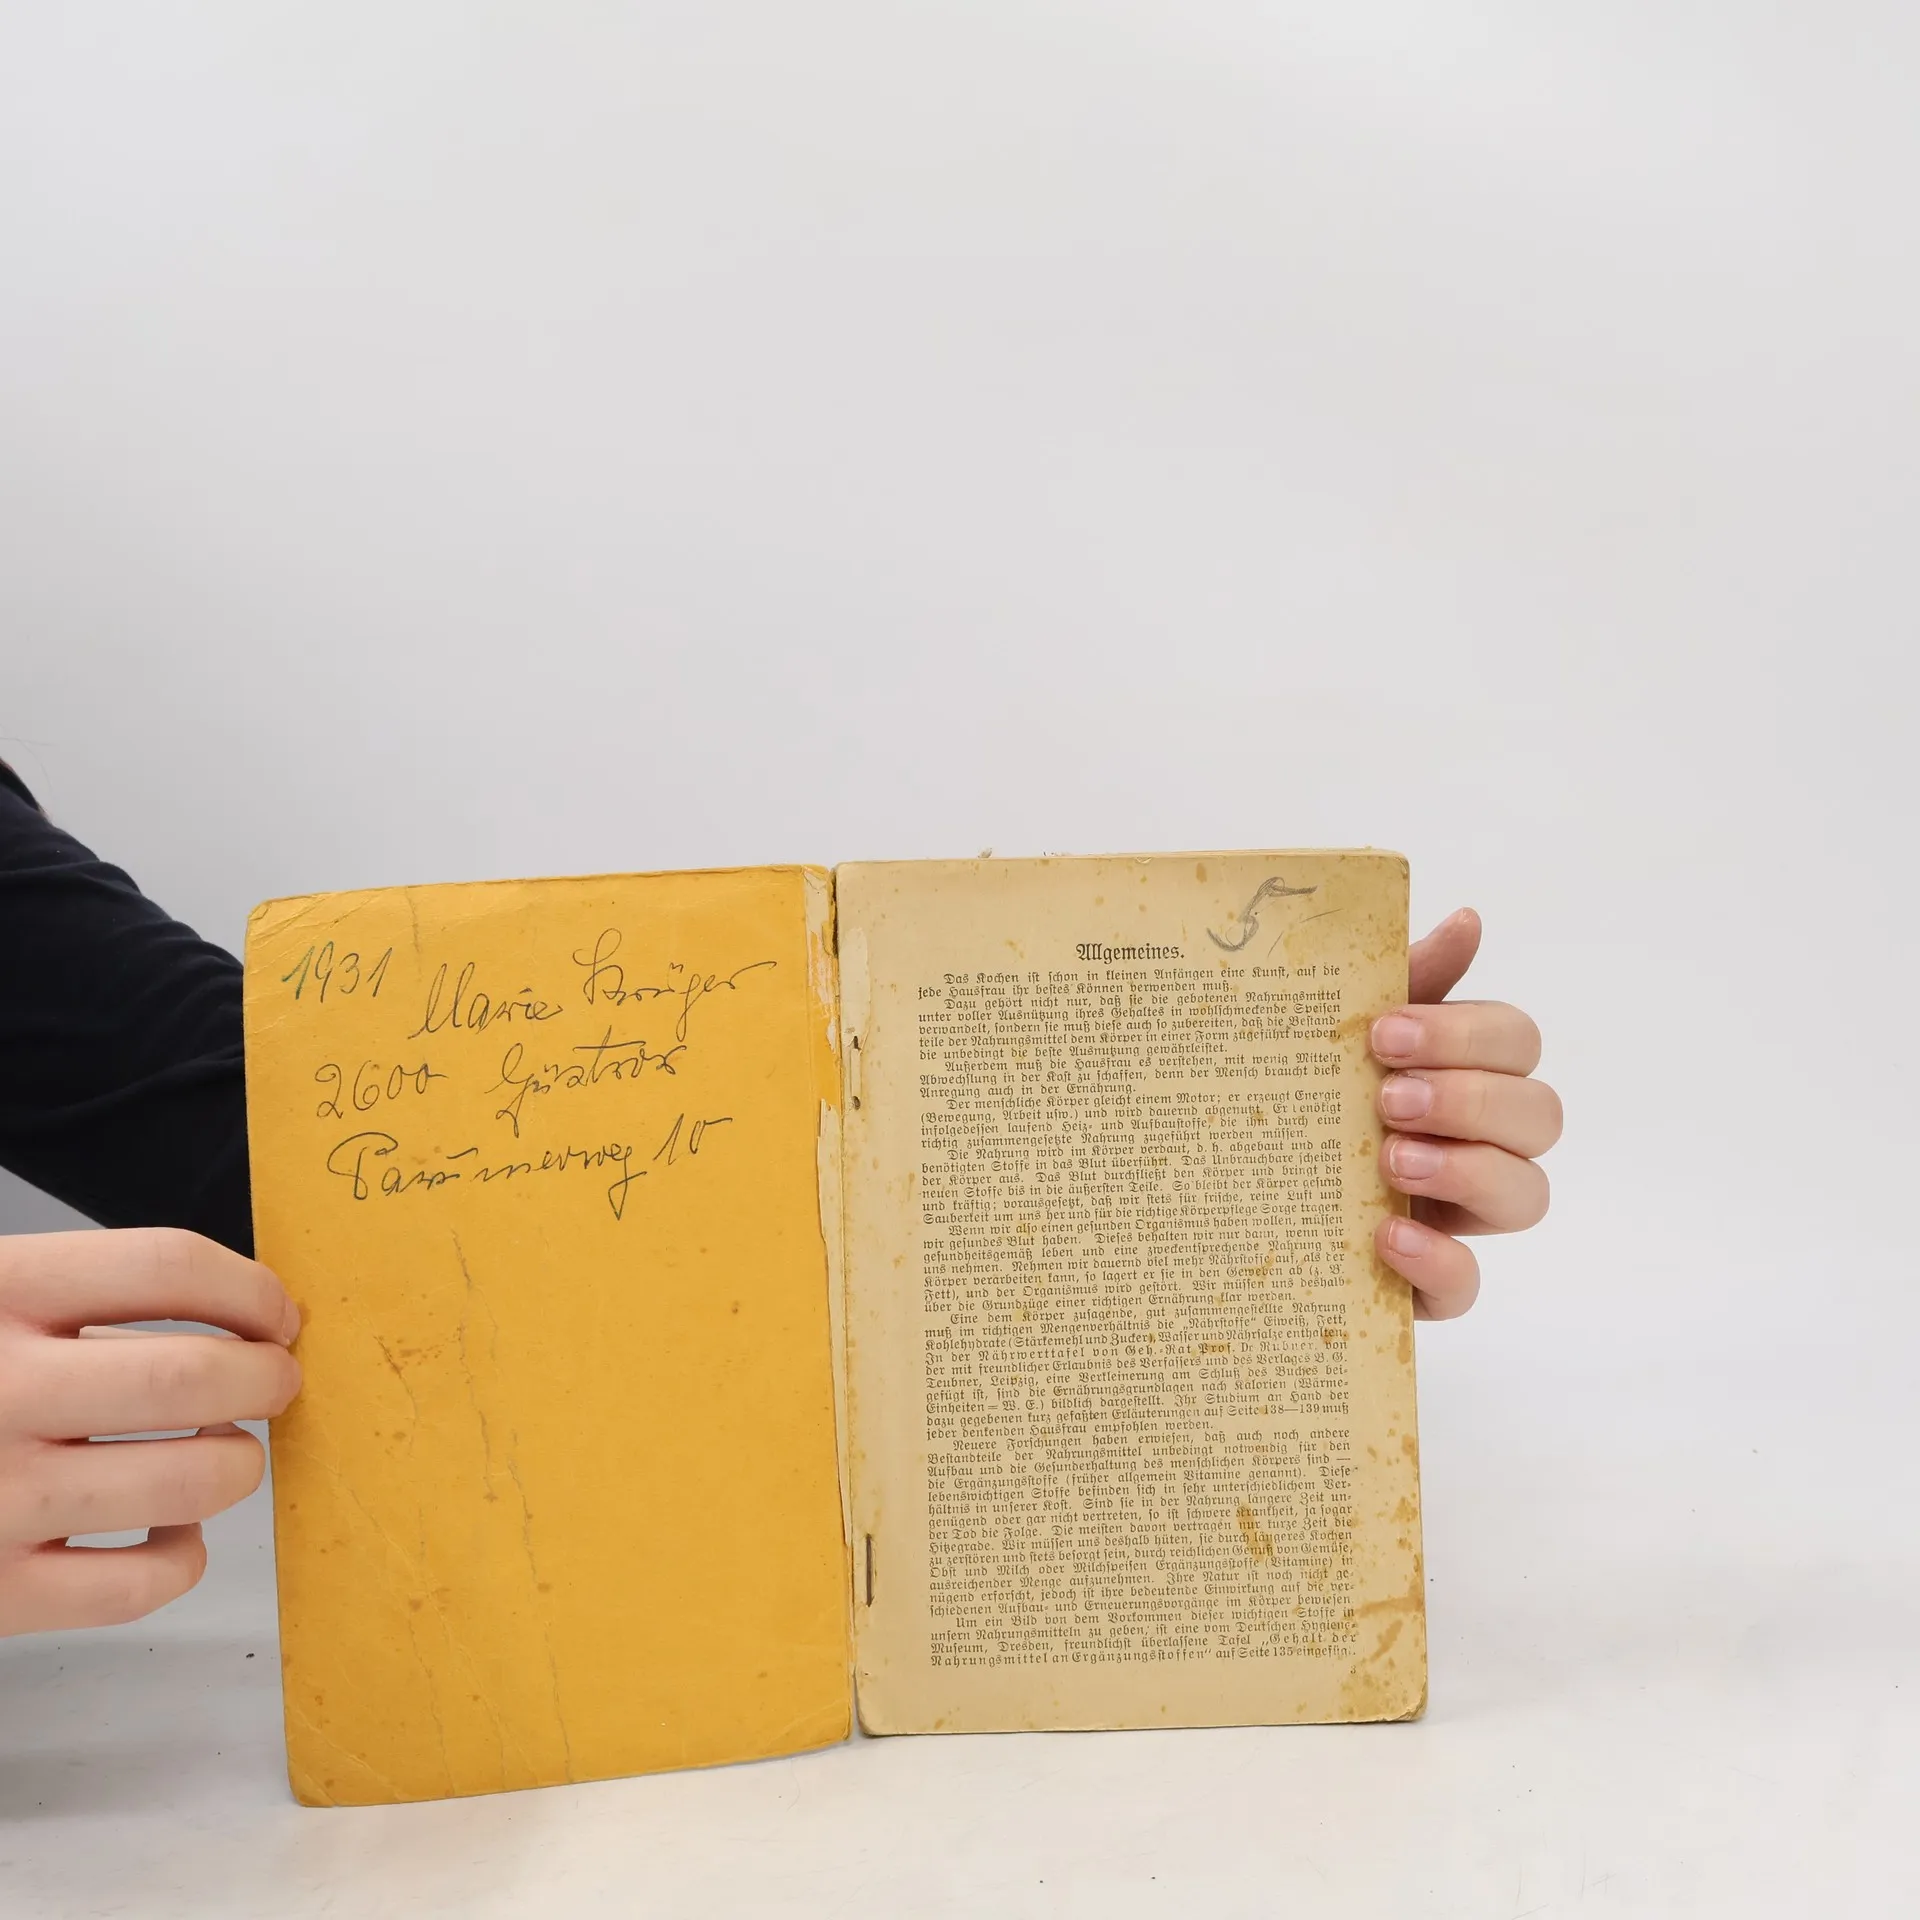 1931
Marie Krüger
2600 Güstrow
10
5
Allgemeines.
Das Kochen ist schon in kleinen Anfängen eine Kunst, auf die
jede Hausfrau ihr bestes Können verwenden muß.
Dazu gehört nicht nur, daß sie die gebotenen Nahrungsmittel
unter voller Ausnützung ihres Gehaltes in wohlschmeckende Speisen
verwandelt, sondern sie muß diese auch so zubereiten, daß die Bestand-
teile der Nahrungsmittel dem Körper in einer Form zugeführt werden,
die unbedingt die beste Ausnutzung gewährleistet.
Außerdem muß die Hausfrau es verstehen, mit wenig Mitteln
Abwechslung in der Kost zu schaffen, denn der Mensch braucht diese
Anregung auch in der Ernährung.
Der menschliche Körper gleicht einem Motor; er erzeugt Energie
(Bewegung, Arbeit usw.) und wird dauernd abgenutzt. Er benötigt
infolgedessen laufend Heiz- und Aufbaustoffe, die ihm durch eine
richtig zusammengesetzte Nahrung zugeführt werden müssen.
Die Nahrung wird im Körper verdaut, d. h. abgebaut und alle
benötigten Stoffe in das Blut überführt. Das Unbrauchbare scheidet
der Körper aus. Das Blut durchfließt den Körper und bringt die
neuen Stoffe bis in die äußersten Teile. So bleibt der Körper gesund
und kräftig; vorausgesetzt, daß wir stets für frische, reine Luft und
Sauberkeit um uns her und für die richtige Körperpflege Sorge tragen.
Wenn wir also einen gesunden Organismus haben wollen, müssen
wir gesundes Blut haben. Dieses behalten wir nur dann, wenn wir
gesundheitsgemäß leben und eine zweckentsprechende Nahrung zu
uns nehmen. Nehmen wir dauernd viel mehr Nährstoffe auf, als der
Körper verarbeiten kann, so lagert er sie in den Geweben ab (z. B.
Fett), und der Organismus wird gestört. Wir müssen uns deshalb
über die Grundzüge einer richtigen Ernährung klar werden.
Eine dem Körper zusagende, gut zusammengestellte Nahrung
muß im richtigen Mengenverhältnis die „Nährstoffe“ Eiweiß, Fett,
Kohlehydrate (Stärkemehl und Zucker), Wasser und Nährsalze enthalten.
In der Nährwerttafel von Geh.-Rat Prof. Dr Rubner, von
der mit freundlicher Erlaubnis des Verfassers und des Verlages B. G.
Teubner, Leipzig, eine Verkleinerung am Schluß des Buches bei-
gefügt ist, sind die Ernährungsgrundlagen nach Kalorien (Wärme-
Einheiten = W. E.) bildlich dargestellt. Ihr Studium an Hand der
dazu gegebenen kurz gefaßten Erläuterungen auf Seite 138—139 muß
jeder denkenden Hausfrau empfohlen werden.
Neuere Forschungen haben erwiesen, daß auch noch andere
Bestandteile der Nahrungsmittel unbedingt notwendig für den
Aufbau und die Gesunderhaltung des menschlichen Körpers sind —
die Ergänzungsstoffe (früher allgemein Vitamine genannt). Diese
lebenswichtigen Stoffe befinden sich in sehr unterschiedlichem Ver-
hältnis in unserer Kost. Sind sie in der Nahrung längere Zeit un-
genügend oder gar nicht vertreten, so ist schwere Krankheit, ja sogar
der Tod die Folge. Die meisten davon vertragen nur kurze Zeit die
Hitzegrade. Wir müssen uns deshalb hüten, sie durch längeres Kochen
zu zerstören und stets besorgt sein, durch reichlichen Genuß von Gemüse,
Obst und Milch oder Milchspeisen Ergänzungsstoffe (Vitamine) in
ausreichender Menge aufzunehmen. Ihre Natur ist noch nicht ge-
nügend erforscht, jedoch ist ihre bedeutende Einwirkung auf die ver-
schiedenen Aufbau- und Erneuerungsvorgänge im Körper bewiesen.
Um ein Bild von dem Vorkommen dieser wichtigen Stoffe in
unsern Nahrungsmitteln zu geben, ist eine vom Deutschen Hygiene-
Museum, Dresden, freundlichst überlassene Tafel „Gehalt der
Nahrungsmittel an Ergänzungsstoffen“ auf Seite 135 eingefügt.
3